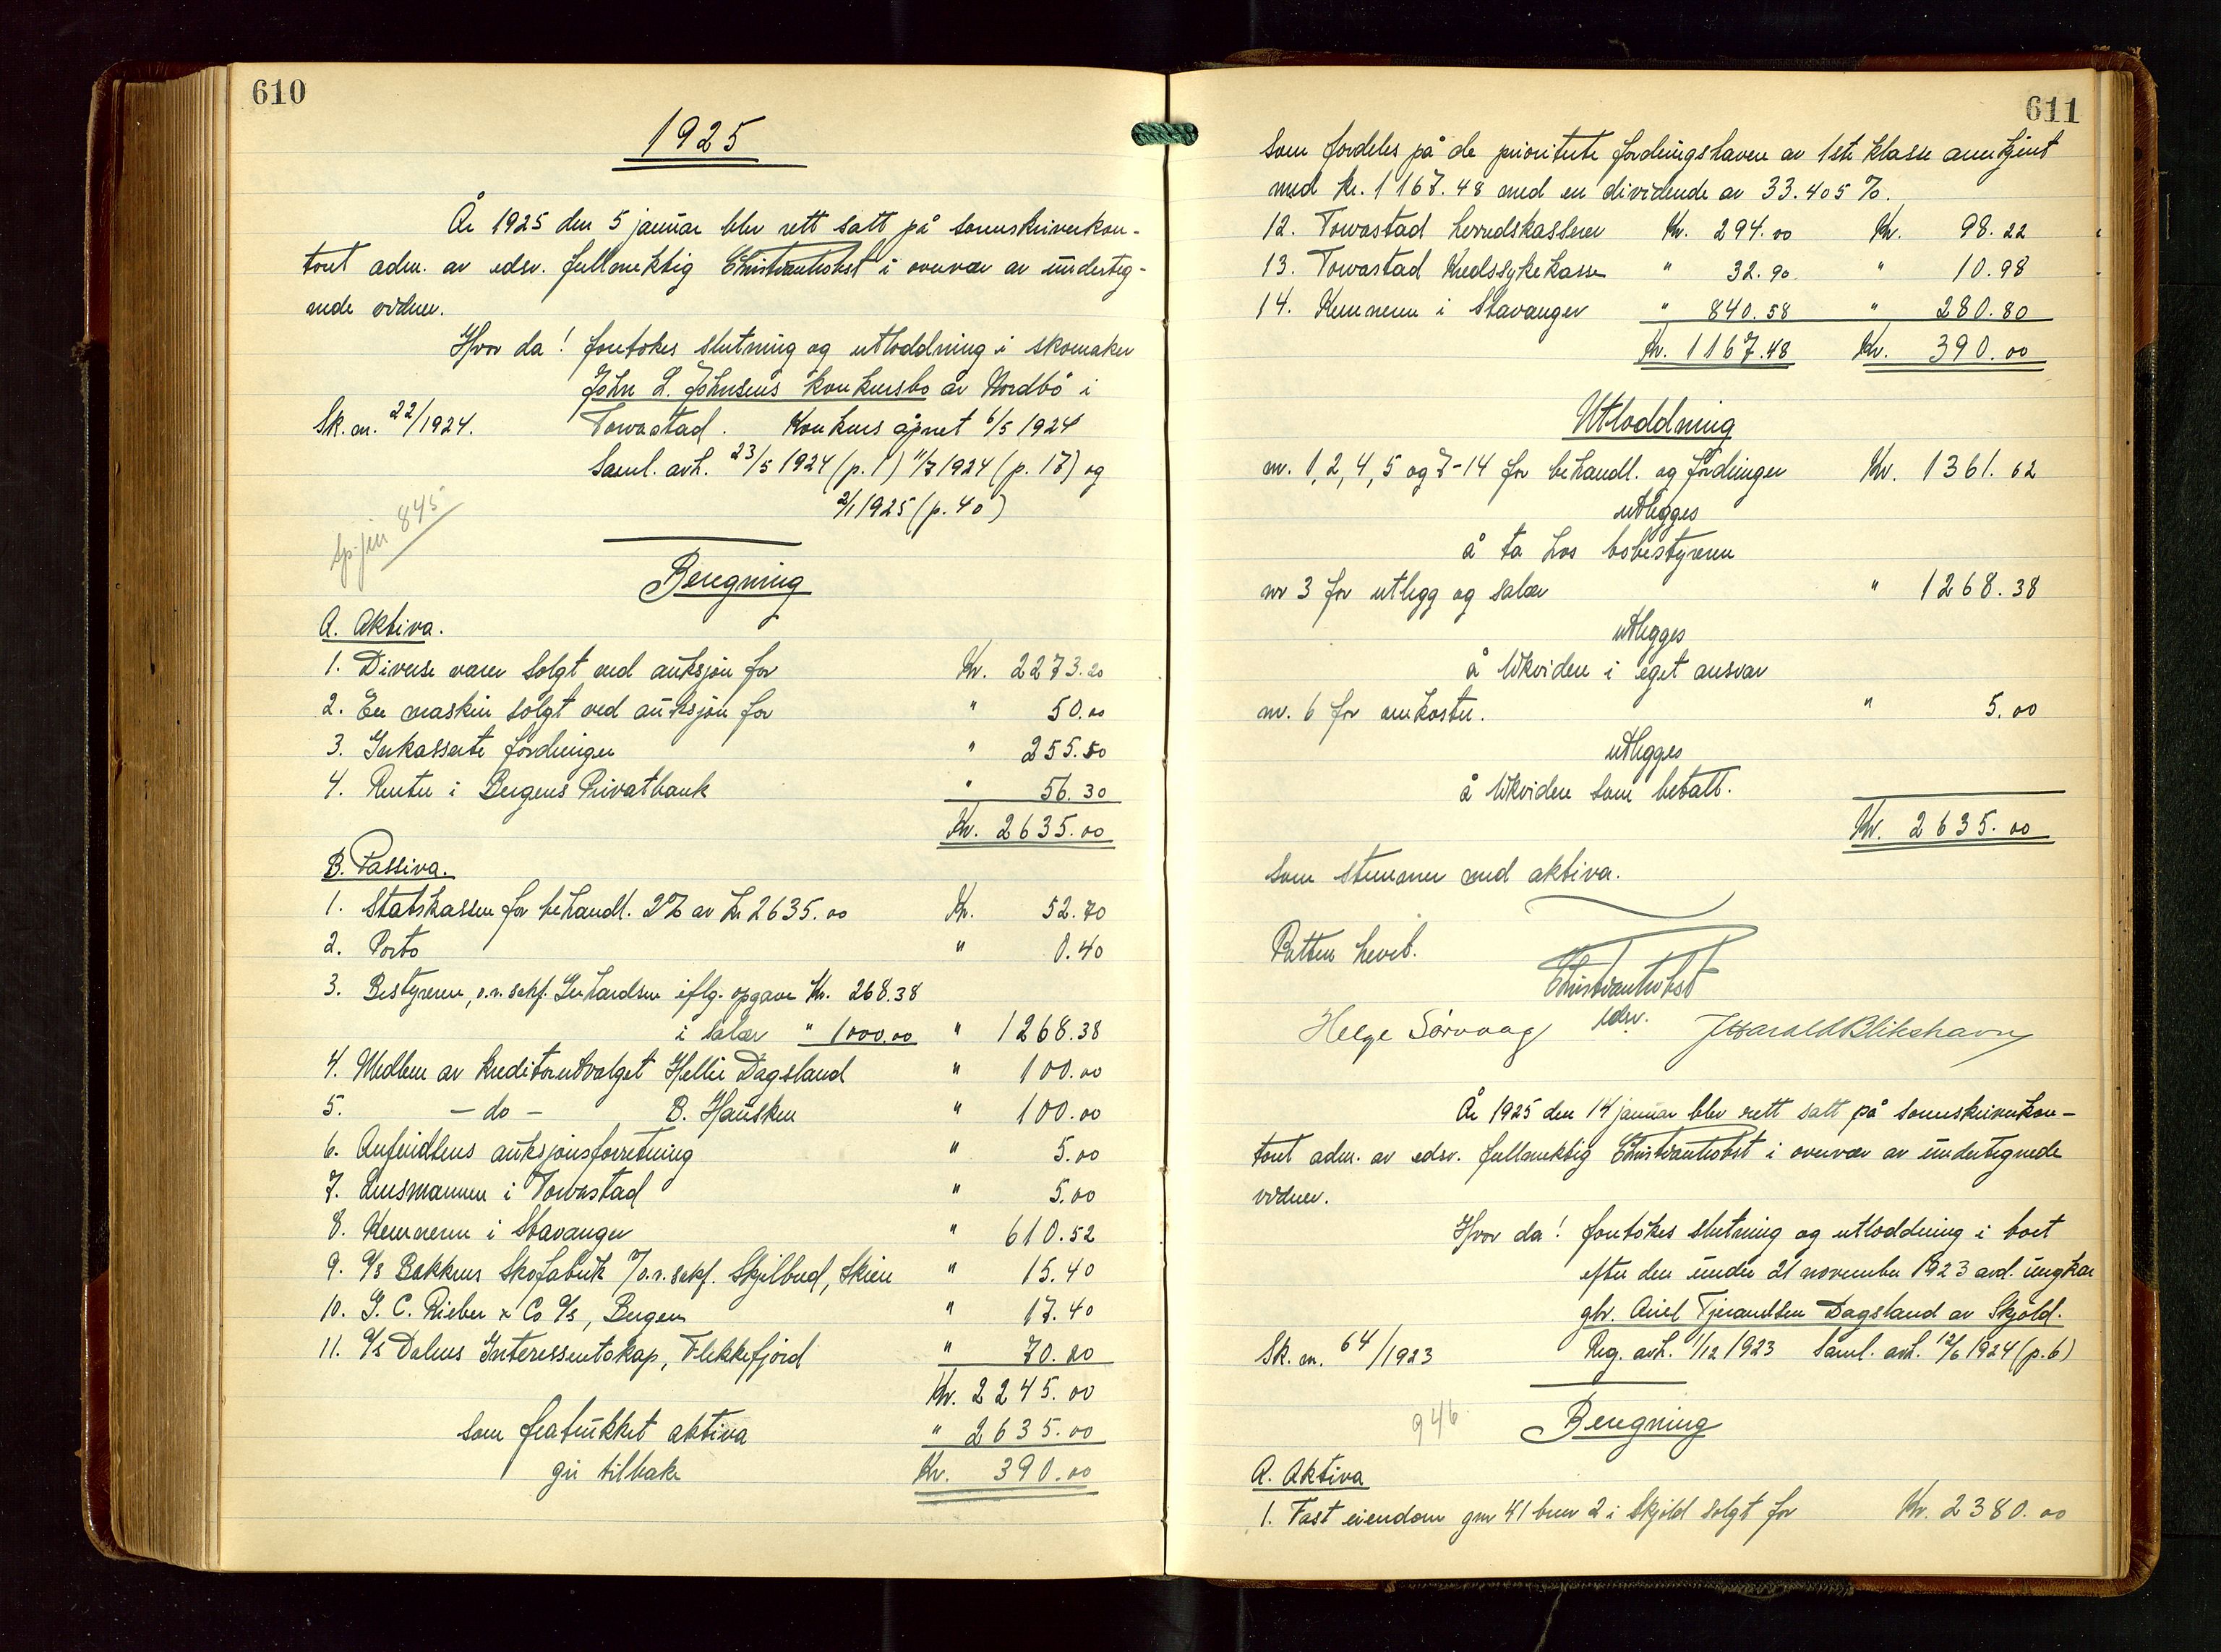 610
1925
År 1925 den 5 januar blev rett satt på sorenskriverkon-
toret adm. av edsv. fullmektig Christian Aubst i overvær av underteg-
nede vidner.
Hvor da! foretokes slutning og utloddning i skomaker
John L. Johnsens konkursbo av Nordbö i
Sk. nr. 22/1924. Torvastad. Konkurs åpnet 6/5 1924
Saml. avh. 23/5 1924 (p. 1) 11/7 1924 (p. 17) og
2/1 1925 (p. 40)
845
Beregning
A. Aktiva.
1. Diverse varer solgt ved auksjon for Kr. 2273.20
2. En maskin solgt ved auksjon for " 50.00
3. Inkasserte fordringer " 255.50
4. Renter i Bergens Privatbank " 56.30
Kr. 2635.00
B. Passiva.
1. Statskassen for behandl. 2% av kr 2635.00 Kr. 52.70
2. Porto " 0.40
3. Bestyreren, o.r.sakf. Gerhardsen iflg. opgave Kr. 268.38
i salær " 1000.00 " 1268.38
4. Medlem av kreditorutvalget Hellie Dagsland " 100.00
5. - do - B. Hausken " 100.00
6. Anfindsens auksjonsforretning " 5.00
7. Lensmannen i Torvastad " 5.00
8. Kemneren i Stavanger " 610.52
9. A/s Bakkens Skofabrik v/o.r.sakf. Skjelbred, Skien " 15.40
10. G. C. Rieber & Co A/s, Bergen " 17.40
11. A/s Dalens Interessentskap, Flekkefjord " 70.20
Kr. 2245.00
som fratrukket aktiva " 2635.00
gir tilbake Kr. 390.00
611
som fordeles på de prioriterte fordringshavere av 1ste klasse anerkjent
med kr. 1167.48 med en dividende av 33.405 %.
12. Torvastad herredskasserer Kr. 294.00 Kr. 98.22
13. Torvastad Kredssykekasse " 32.90 " 10.98
14. Kemneren i Stavanger " 840.58 " 280.80
Kr. 1167.48 Kr. 390.00
Utloddning
nr. 1, 2, 4, 5 og 7-14 for behandl. og fordringer Kr. 1361.62
utlegges
å ta hos bobestyreren
nr 3 for utlegg og salær " 1268.38
utlegges
å likvidere i eget ansvar
nr. 6 for omkostn. " 5.00
utlegges
å likvidere som betalt.
Kr. 2635.00
som stemmer med aktiva.
Retten hevet.
edsv.
Helge Sørvaag J Harald Blikshavn
År 1925 den 14 januar blev rett satt på sorenskriverkon-
toret adm. av edsv. fullmektig Christian Aubst i overvær av undertegnede
vidner.
Hvor da! foretokes slutning og utloddning i boet
efter den under 21 november 1923 avd. ungkar
gbr. Tjerandsen Dagsland av Skjold.
Sk. nr. 64/1923 Reg. avh. 1/12 1923 Saml. avh. 12/6 1924 (p. 6)
946
Beregning
A. Aktiva
1. Fast eiendom gnr 41 bnr 2 i Skjold solgt for Kr. 2380.00